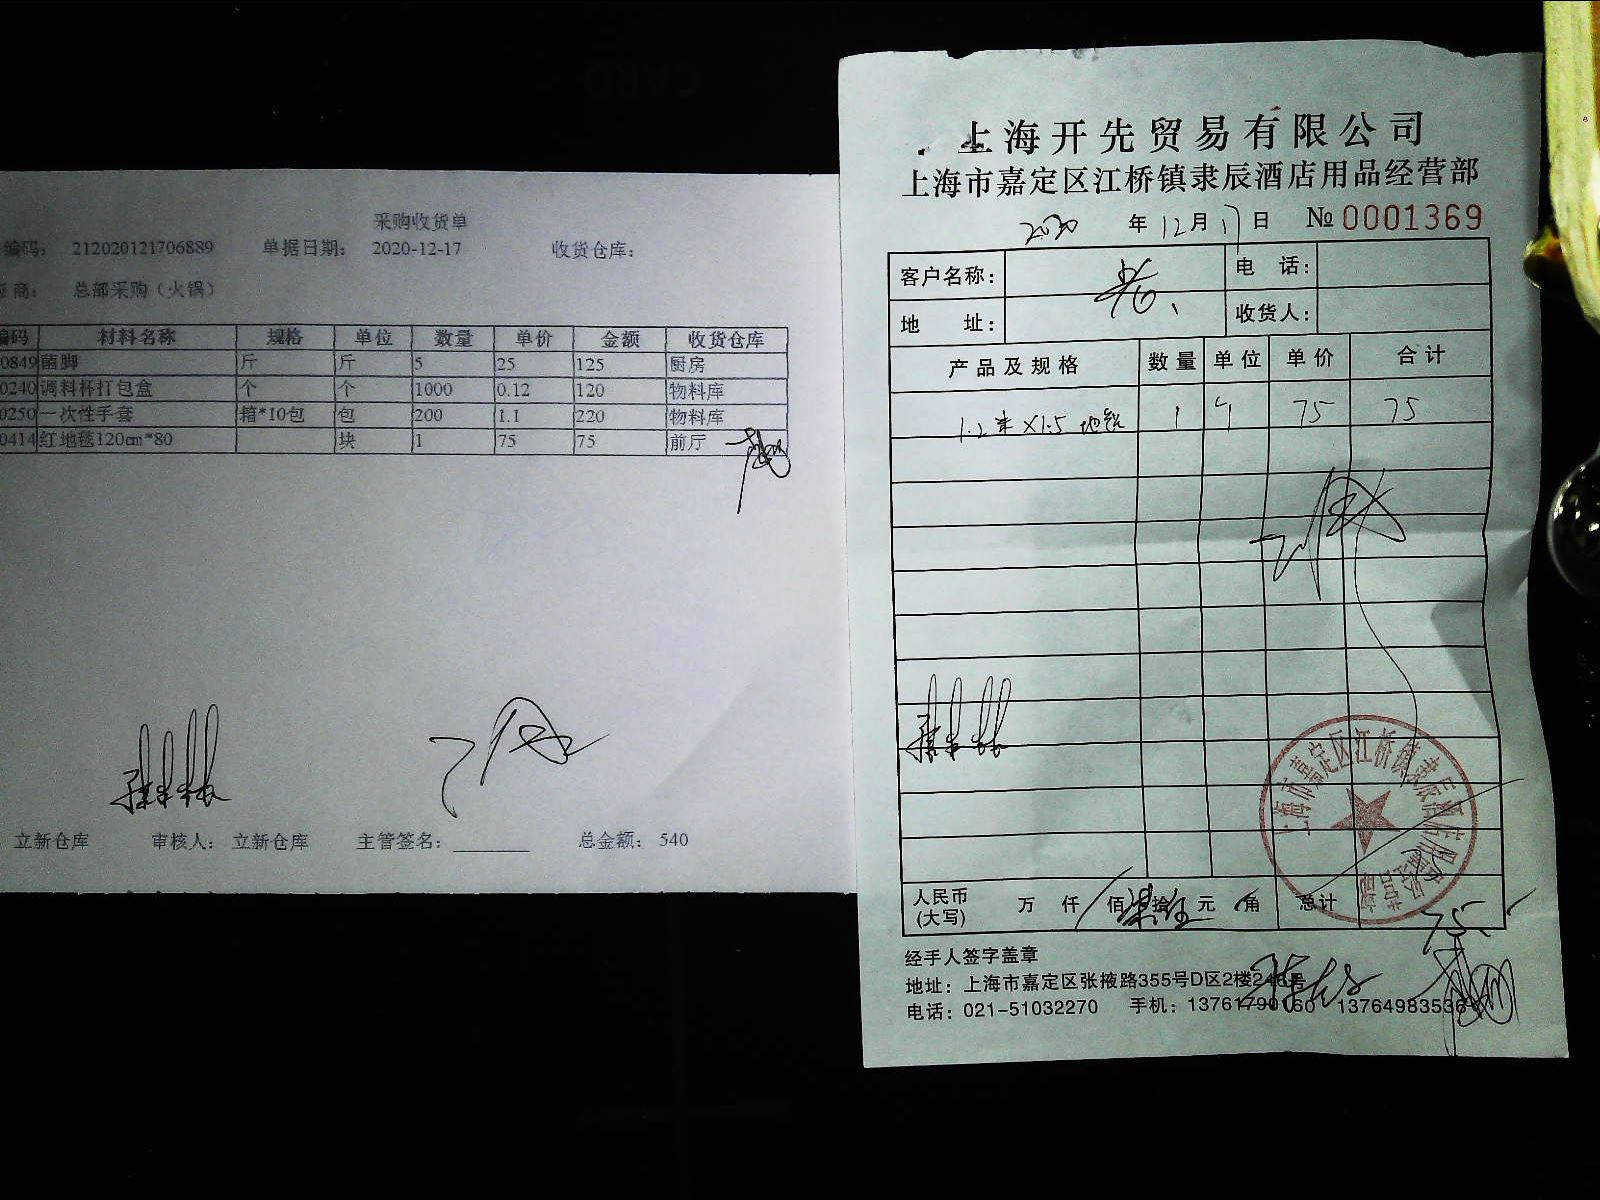 采购收货单
编码： 212020121706889 单据日期： 2020-12-17 收货仓库：
商： 总部采购（火锅）
编码 材料名称 规格 单位 数量 单价 金额 收货仓库
0849 菌脚 斤 斤 5 25 125 厨房
0240 调料杯打包盒 个 个 1000 0.12 120 物料库
0250 一次性手套 箱*10包 包 200 1.1 220 物料库
0414 红地毯120cm*80 块 1 75 75 前厅
立新仓库 审核人： 立新仓库 主管签名： 总金额： 540
上海开先贸易有限公司
上海市嘉定区江桥镇隶辰酒店用品经营部
2020 年 12 月 17 日 № 0001369
客户名称： 电 话：
地 址： 收货人：
产品及规格 数量 单位 单价 合计
1.2米×1.5 地毯 1 个 75 75
人民币(大写) 万 仟 佰 柒拾伍元 角 总计 75
经手人签字盖章
地址：上海市嘉定区张掖路355号D区2楼246号
电话：021-51032270 手机：13761790160 13764983536